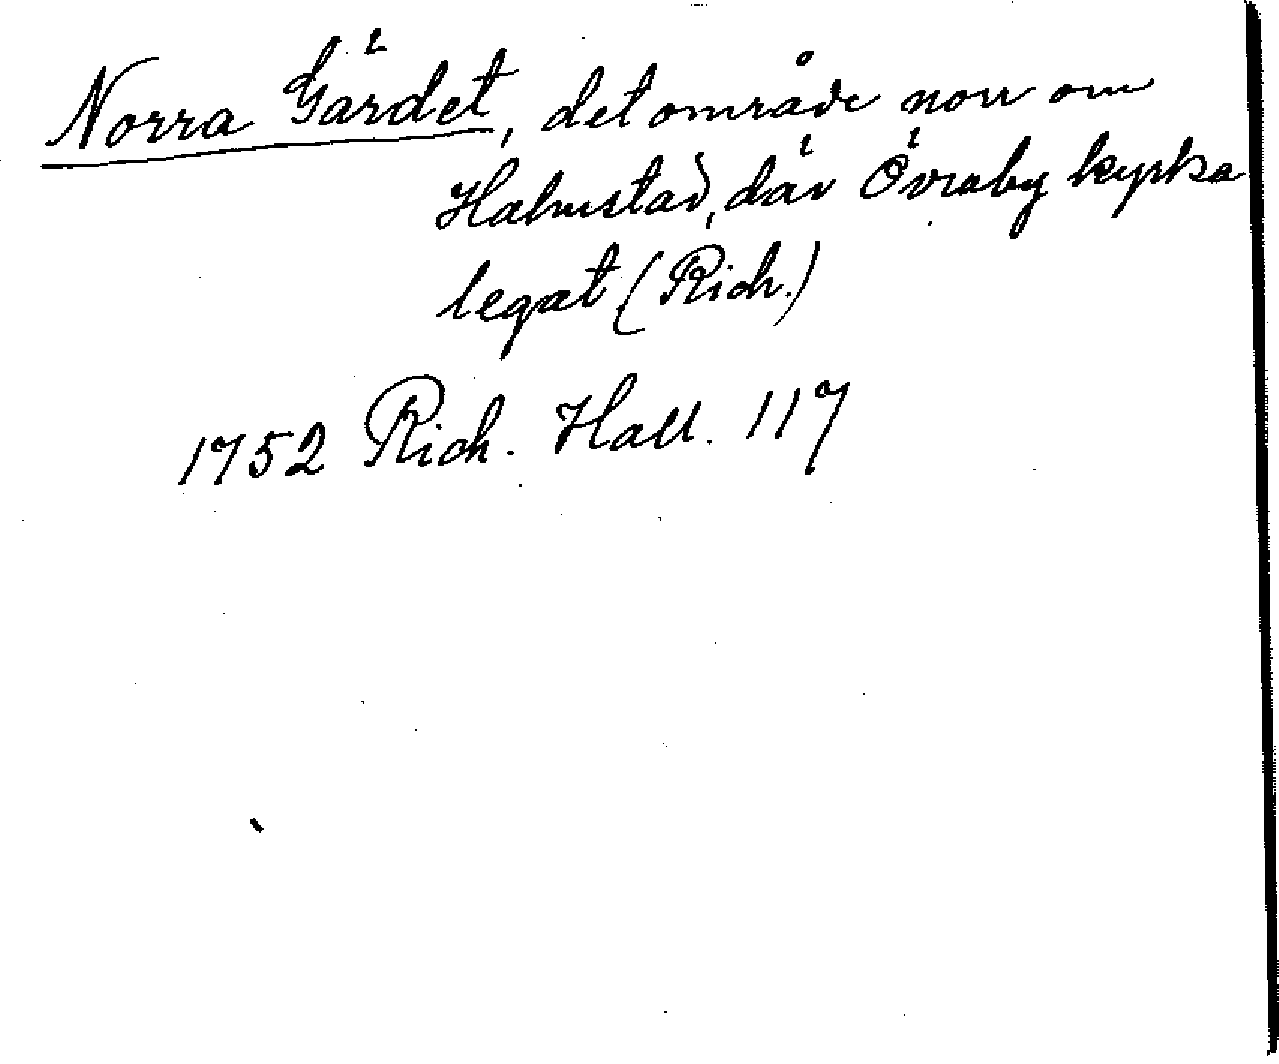 Norra Gärdet, det område norr om
Halmstad, där Övraby kyrka
legat (Rich.)
1752 Rich. Hall. 117